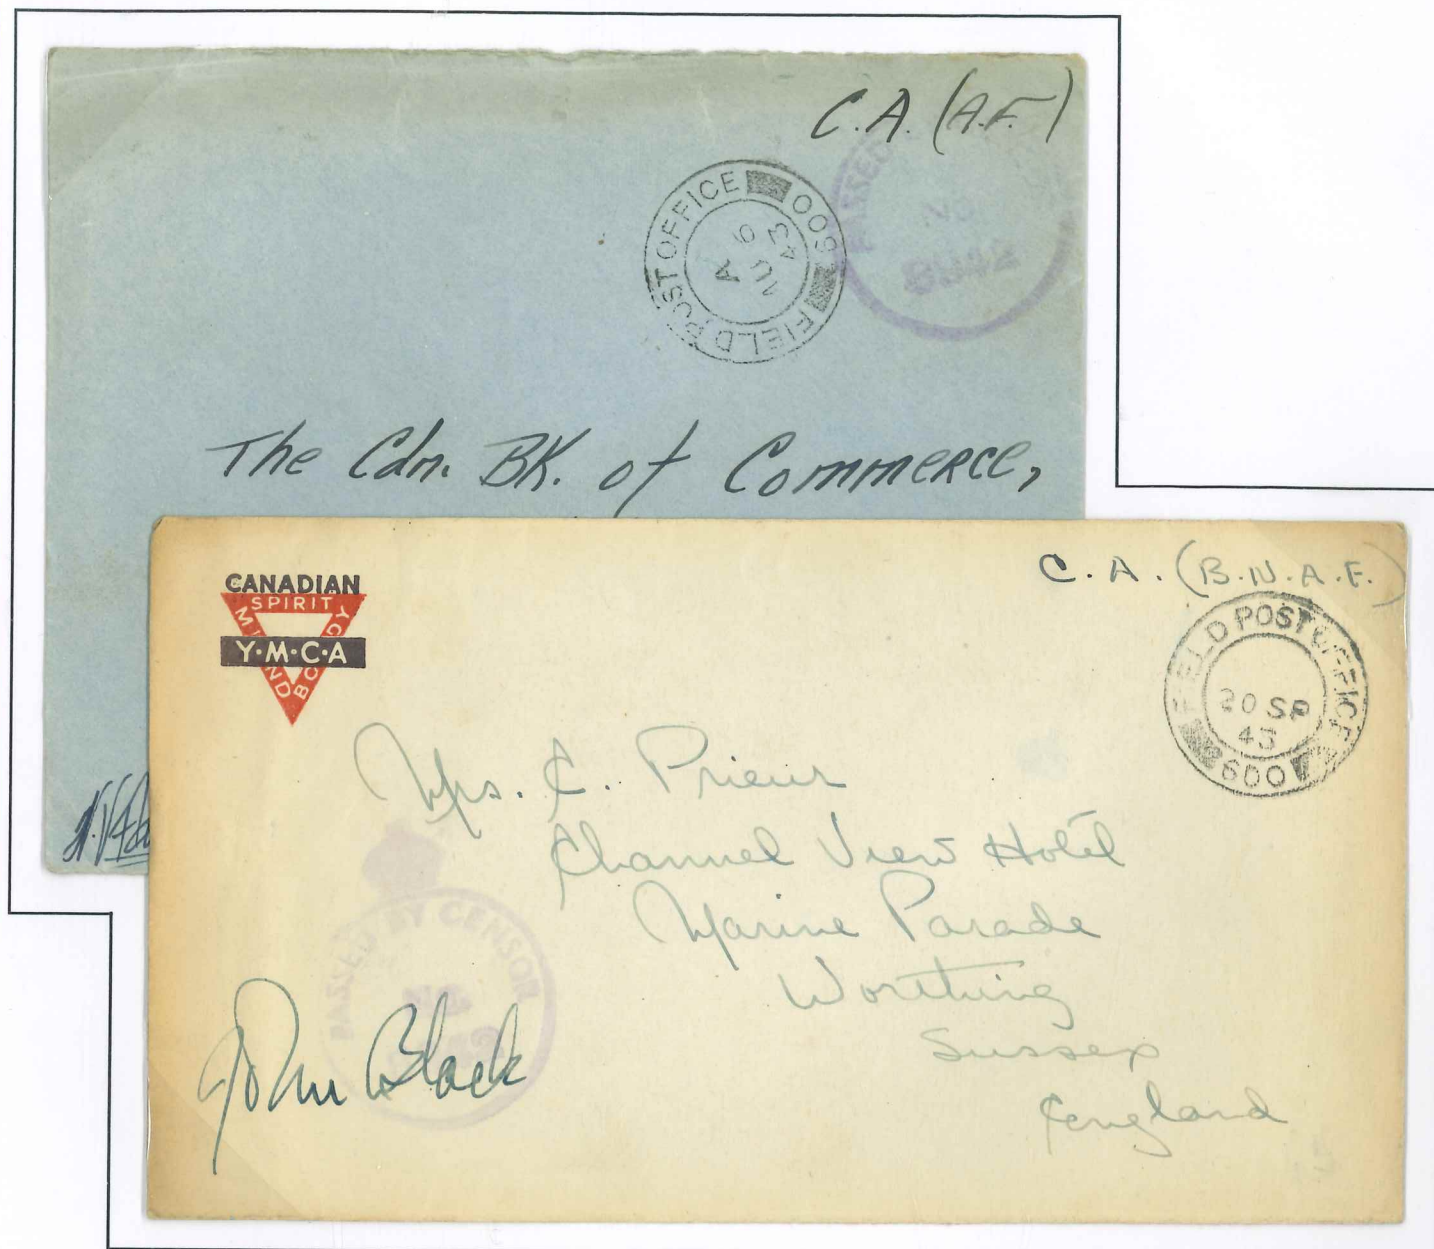 C.A. (A.F.)
FIELD POST OFFICE
600
A
9
AU
43
PASSED
No
The Cdn. BK. of Commerce,
CANADIAN
SPIRIT
MIND
BODY
Y·M·C·A
C. A. (B.N.A.F.)
FIELD POST OFFICE
20 SP
43
600
Mrs. C. Prieur
Channel View Hotel
Marine Parade
Worthing
Sussex
England
PASSED BY CENSOR
No
John Black